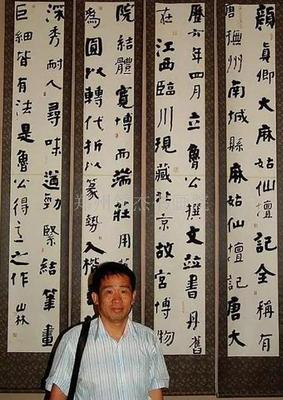 顏真卿大麻姑仙壇記全稱有
唐撫州南城縣麻姑仙壇記唐大
曆六年四月立魯公撰文竝書丹舊
在江西臨川現藏北京故宮博物
院結體寬博而端莊用
為圓以轉代折以篆勢入楷
深秀耐人尋味遒勁緊結筆畫
巨細皆有法是魯公得意之作 山林